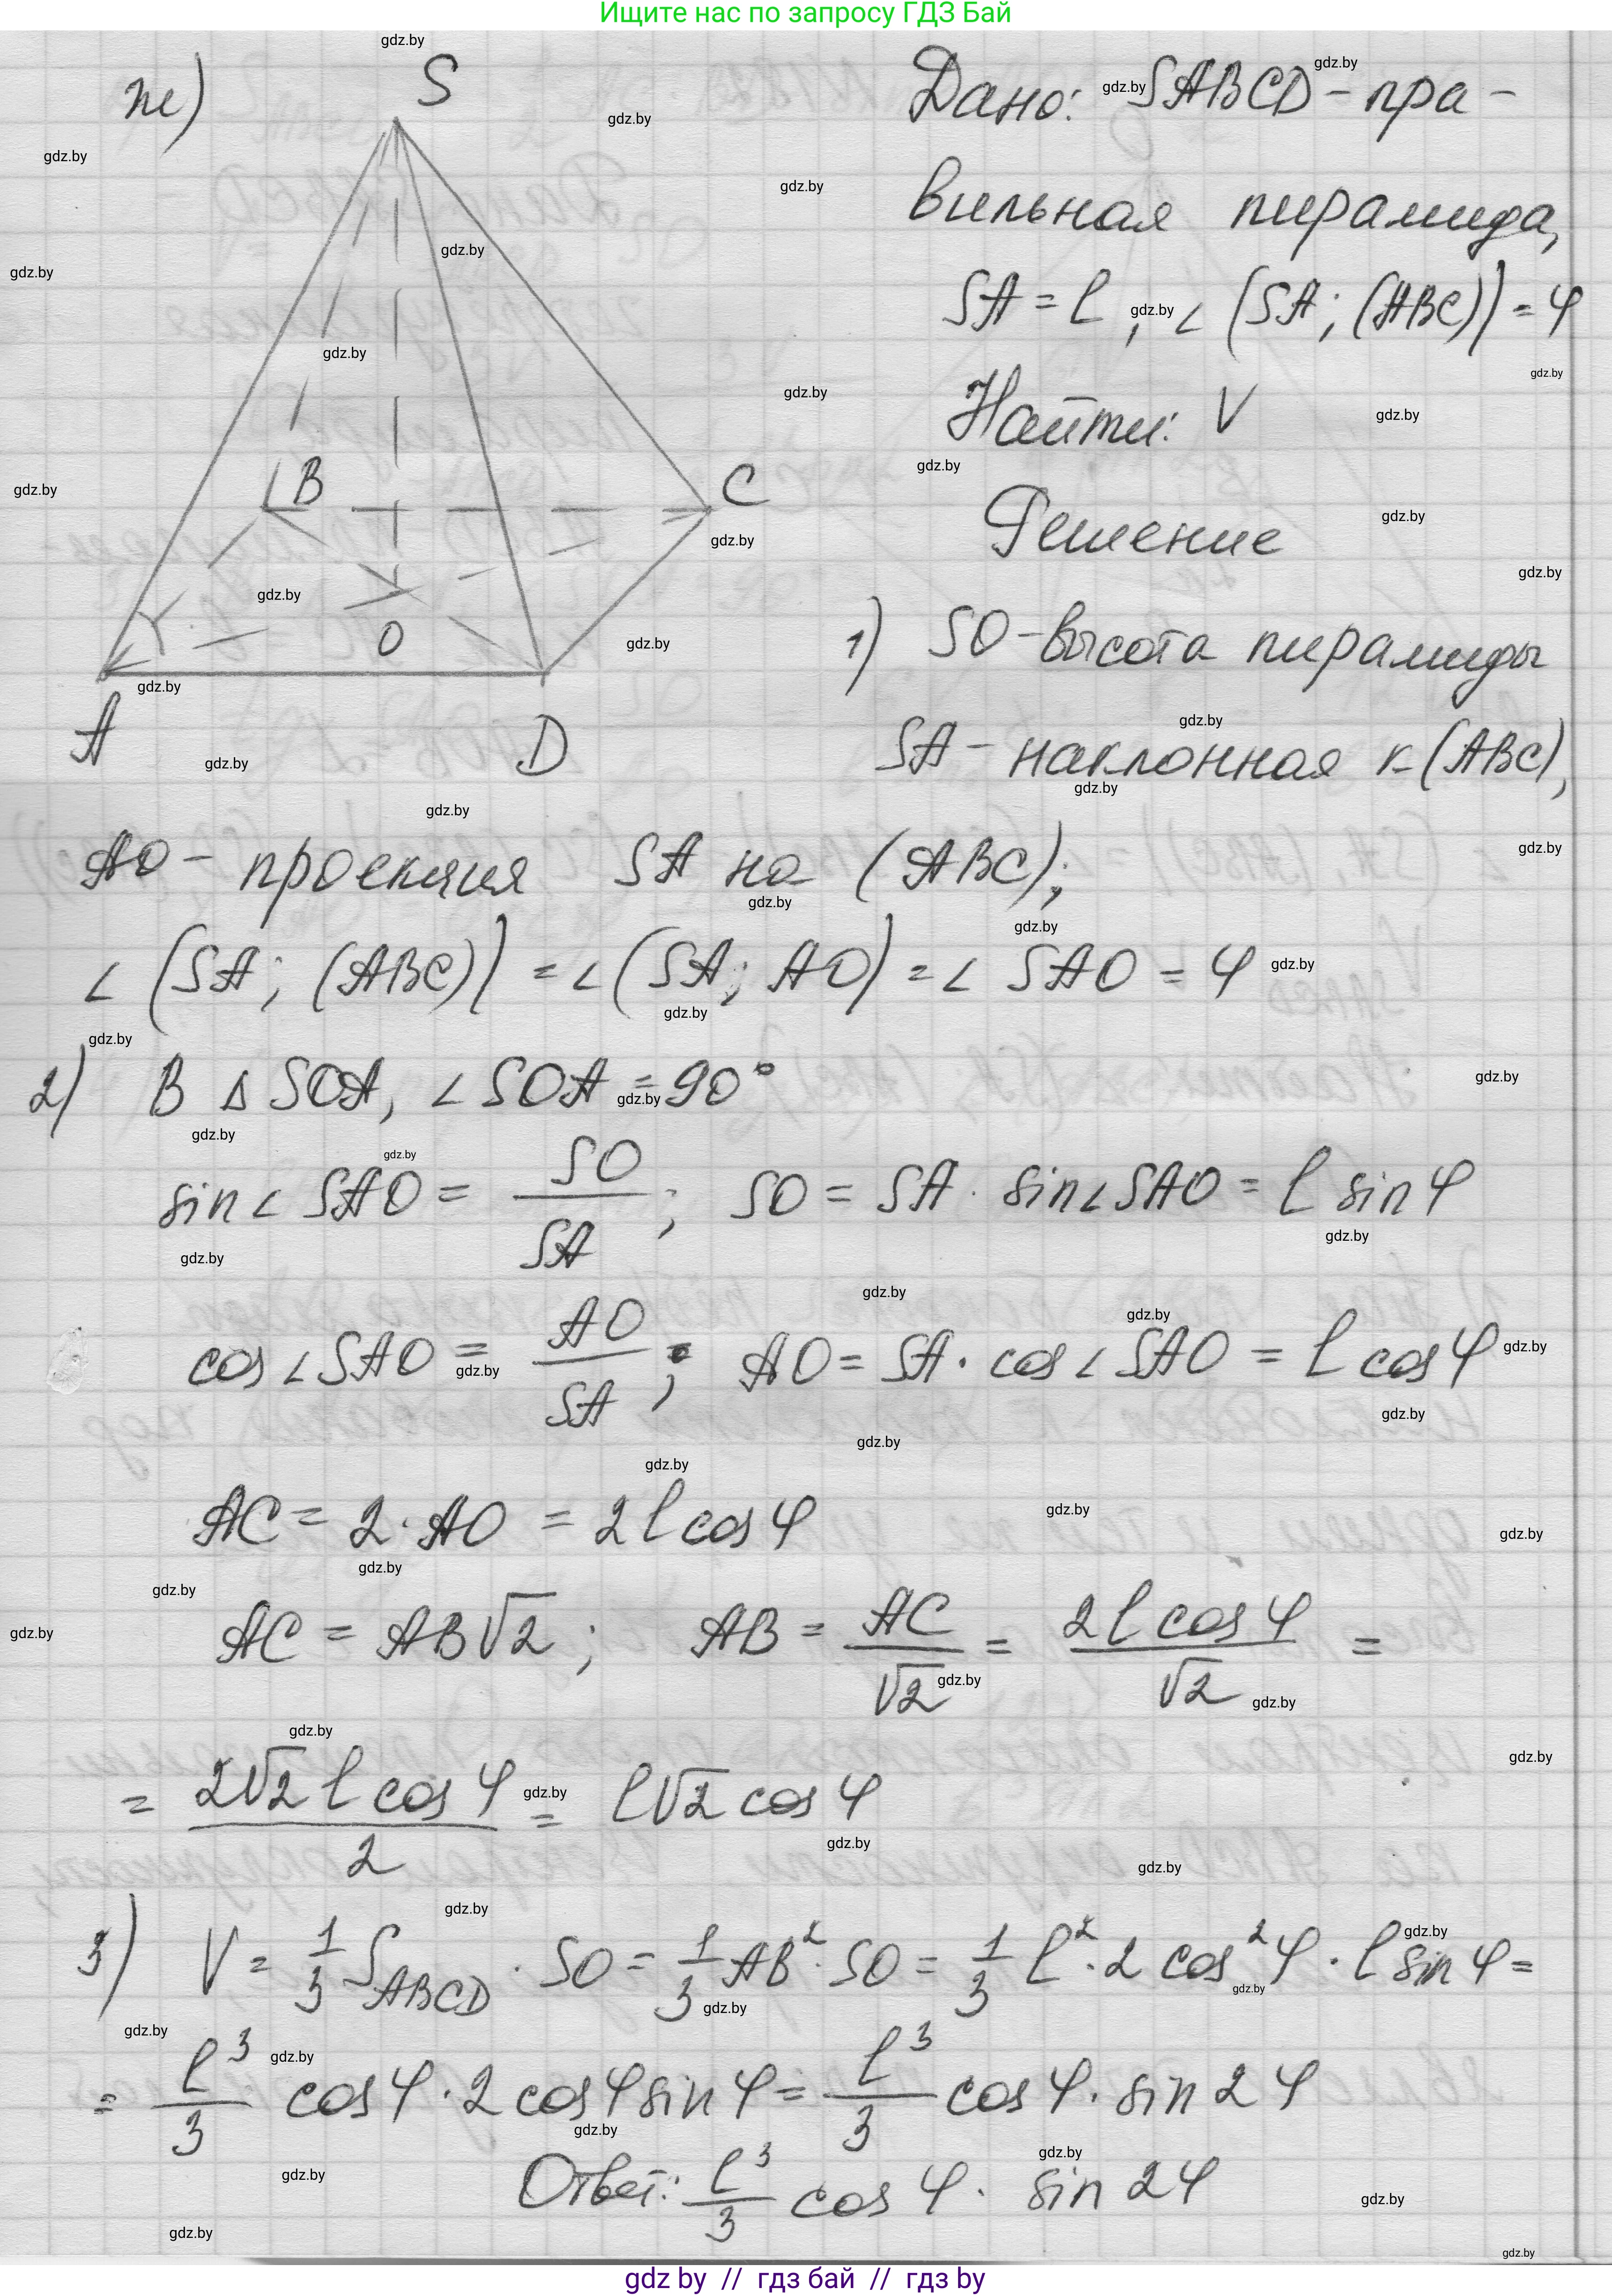 Ищите нас по запросу ГДЗ Бай
ж)
S
B
C
O
A
D
Дано: SABCD - пра-
вильная пирамида,
SA = l, ∠(SA; (ABC)) = φ
Найти: V
Решение
1) SO - высота пирамиды
SA - наклонная к (ABC),
AO - проекция SA на (ABC);
∠(SA; (ABC)) = ∠(SA; AO) = ∠SAO = φ
2) В Δ SOA, ∠SOA = 90°
sin∠SAO = SO/SA; SO = SA · sin∠SAO = l sin φ
cos∠SAO = AO/SA; AO = SA · cos∠SAO = l cos φ
AC = 2·AO = 2l cos φ
AC = AB√2; AB = AC/√2 = 2l cos φ/√2 =
= 2√2 l cos φ/2 = l√2 cos φ
3) V = 1/3 S_ABCD · SO = 1/3 AB² · SO = 1/3 l² · 2 cos² φ · l sin φ =
= l³/3 cos φ · 2 cos φ sin φ = l³/3 cos φ · sin 2φ
Ответ: l³/3 cos φ · sin 2φ
gdz by // гдз бай // гдз by